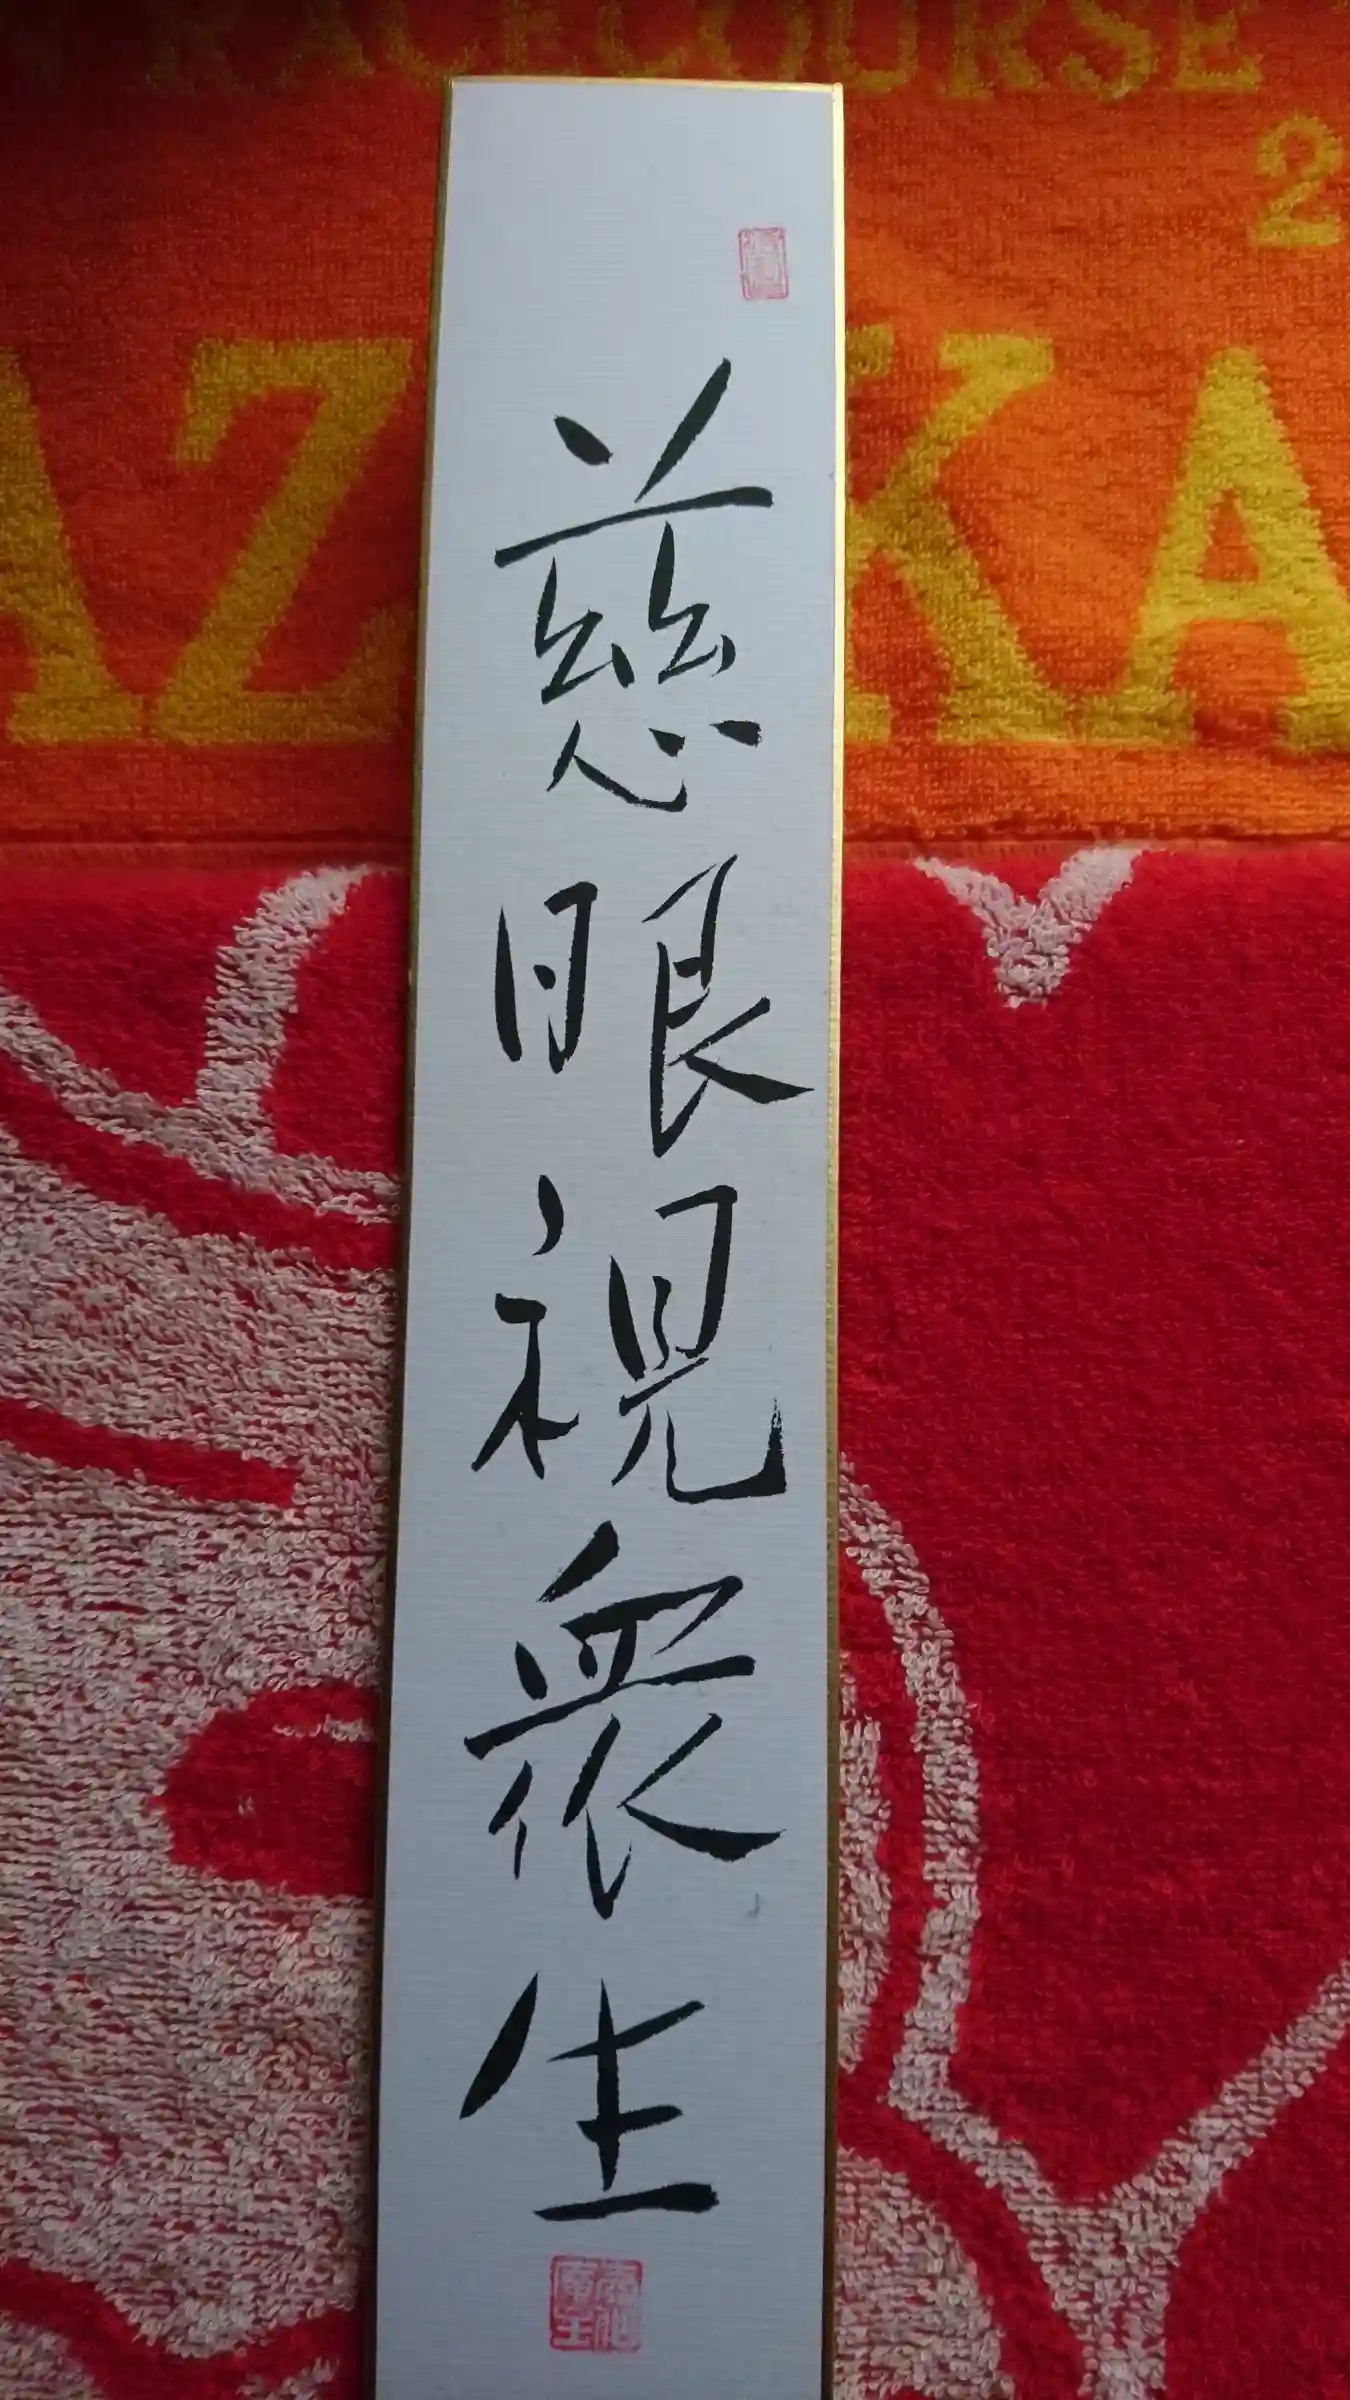 RACECOURSE
2
AZ KA
慈眼視衆生